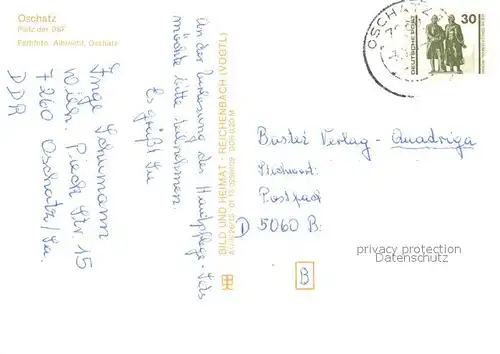 Oschatz
Platz der DSF
Farbfoto: Albrecht, Oschatz
Inge Schumann
Wilh. Pieck Str. 15
7260 Oschatz/Sa.
DDR
An der Verlosung des Handpflege-Sets
möchte bitte teilnehmen.
Es grüßt Sie
BILD UND HEIMAT · REICHENBACH (VOGTL)
OSCHATZ
DEUTSCHE POST
30
Buster Verlag - Quadriga
Stichwort:
Postfach
D 5060 B.
B
privacy protection
Datenschutz